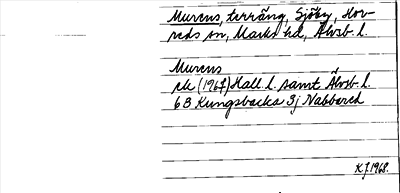 Murens, terräng, Sjöby, Hor-
reds sn, Marks hd, Älvsb. l.
Murens
ek (1967) Hall. l. samt Älvsb. l.
6B Kungsbacka 3j Nabbared
KJ 1968.